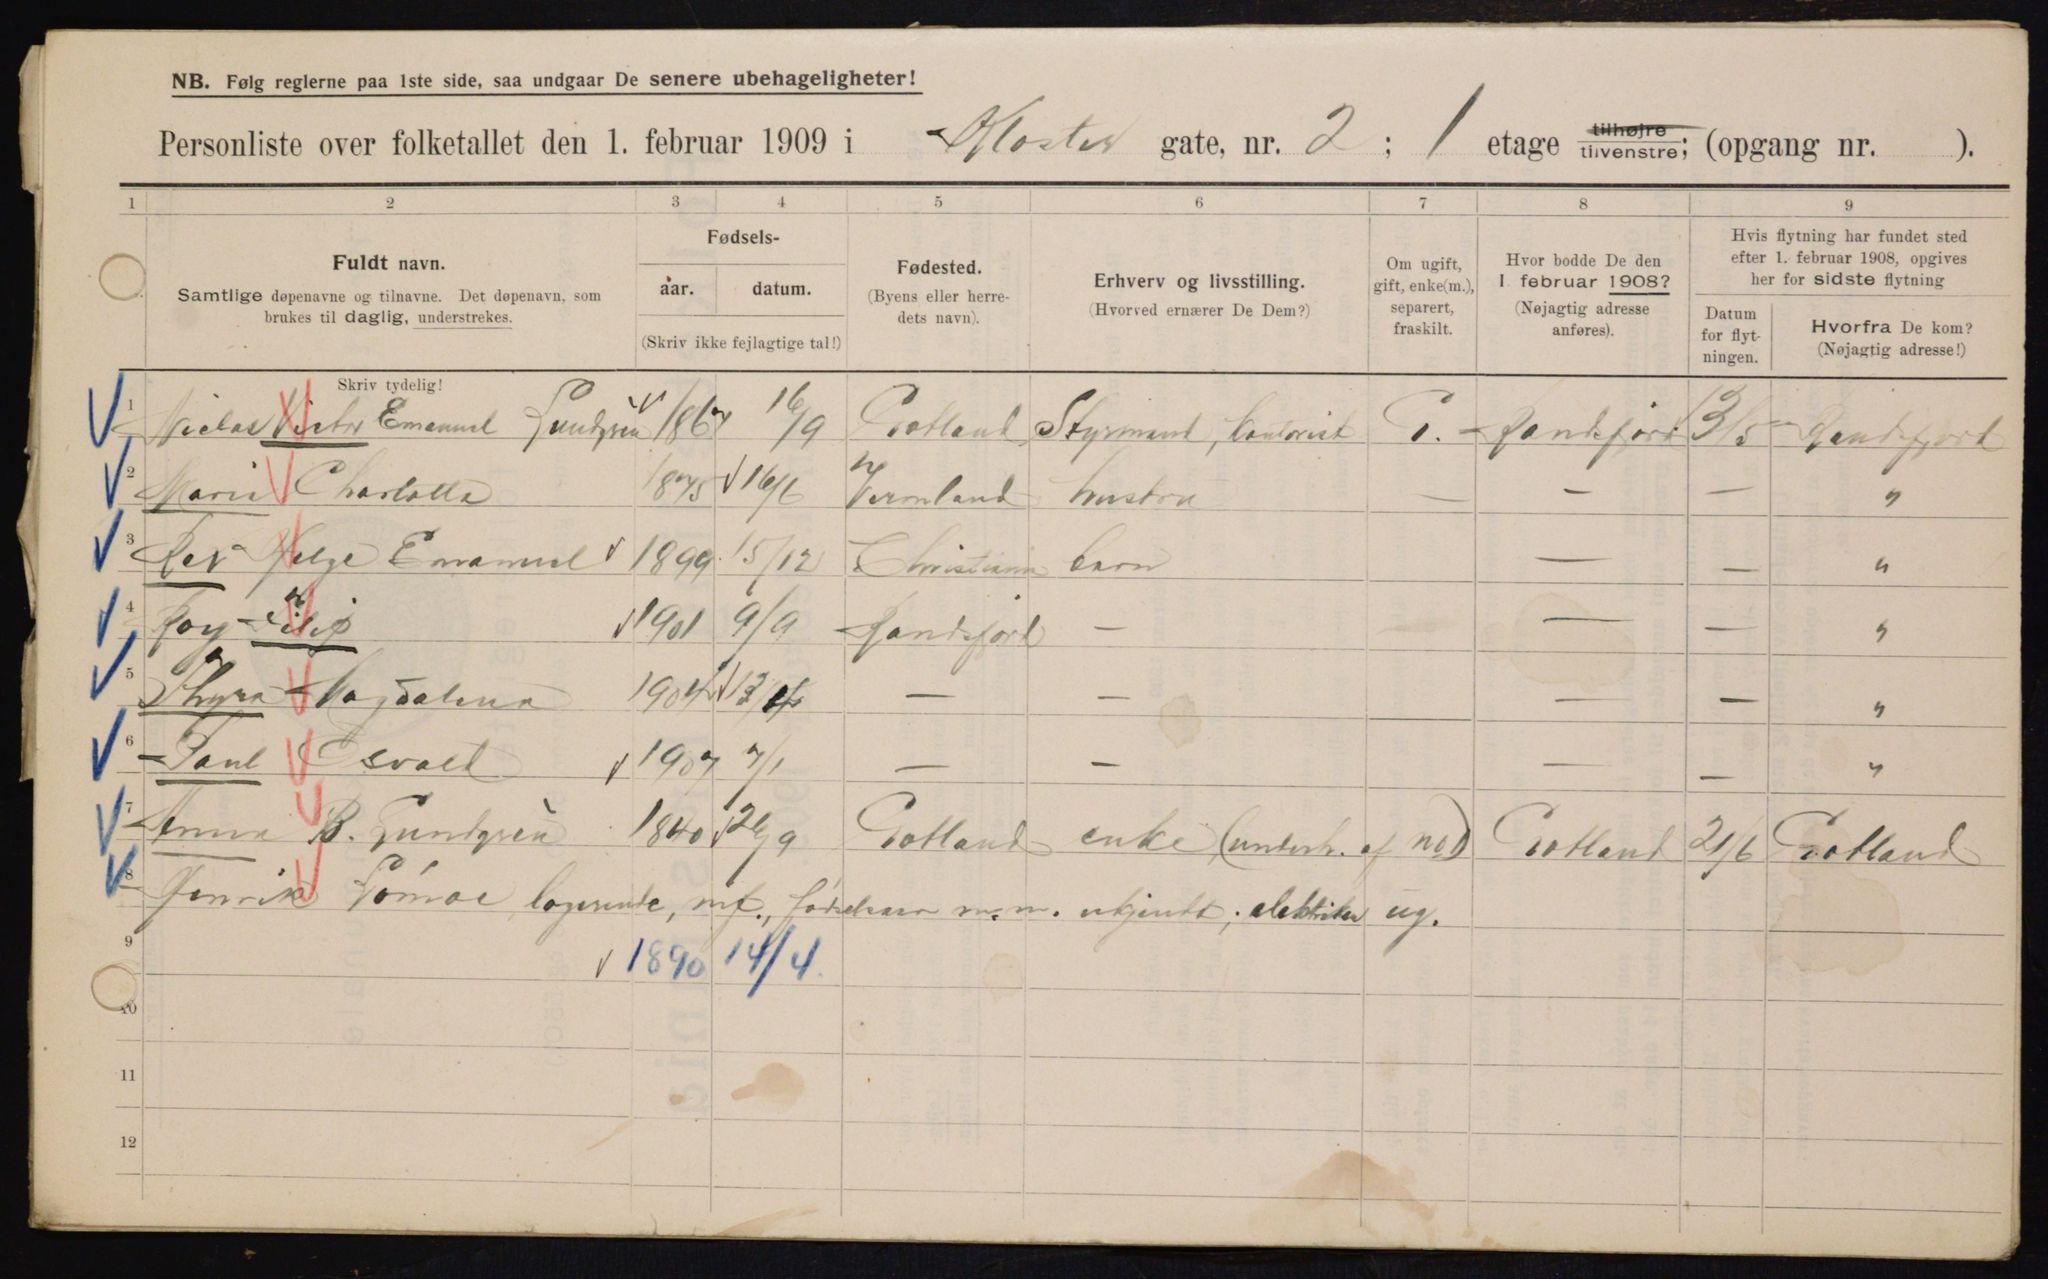 NB. Følg reglerne paa 1ste side, saa undgaar De senere ubehageligheter!
Personliste over folketallet den 1. februar 1909 i Kloster gate, nr. 2 ; 1 etage tilhøjre tilvenstre; (opgang nr. ).
1 2 3 4 5 6 7 8 9
Fuldt navn.
Samtlige døpenavne og tilnavne. Det døpenavn, som
brukes til daglig, understrekes.
Skriv tydelig!
Fødsels-
aar. datum.
(Skriv ikke fejlagtige tal!)
Fødested.
(Byens eller herre-
dets navn).
Erhverv og livsstilling.
(Hvorved ernærer De Dem?)
Om ugift,
gift, enke(m.),
separert,
fraskilt.
Hvor bodde De den
1. februar 1908?
(Nøjagtig adresse
anføres).
Hvis flytning har fundet sted
efter 1. februar 1908, opgives
her for sidste flytning
Datum
for flyt-
ningen.
Hvorfra De kom?
(Nøjagtig adresse!)
1 Niclas Victor Emanuel Lundgrèn 1867 16/9 Gotland Styrmand, kontorist G. Randsfjord 13/5 Randsfjord
2 Maria Charlotta 1875 16/6 Vermland hustru — — — "
3 Rex Helge Emanuel 1899 15/12 Christiania barn — — "
4 Roy Filip 1901 9/9 Randsfjord — — — "
5 Thyra Magdalena 1904 — — — — "
6 Paul Osvald 1907 7/1 — — — — "
7 Anna B. Lundgrèn 1840 26/9 Gotland enke (underh. af no 1) Gotland 21/6 Gotland
8 Henrik logerende, mf., fødselsaar m. m. ukjendt; elektriker ug.
9 1890 14/4.
10
11
12